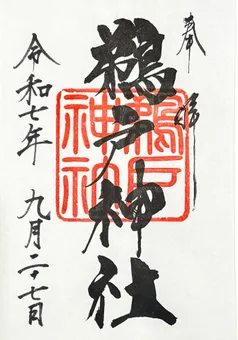 奉拝
鵜戸神社
鵜戸神社
令和七年 九月二十七日